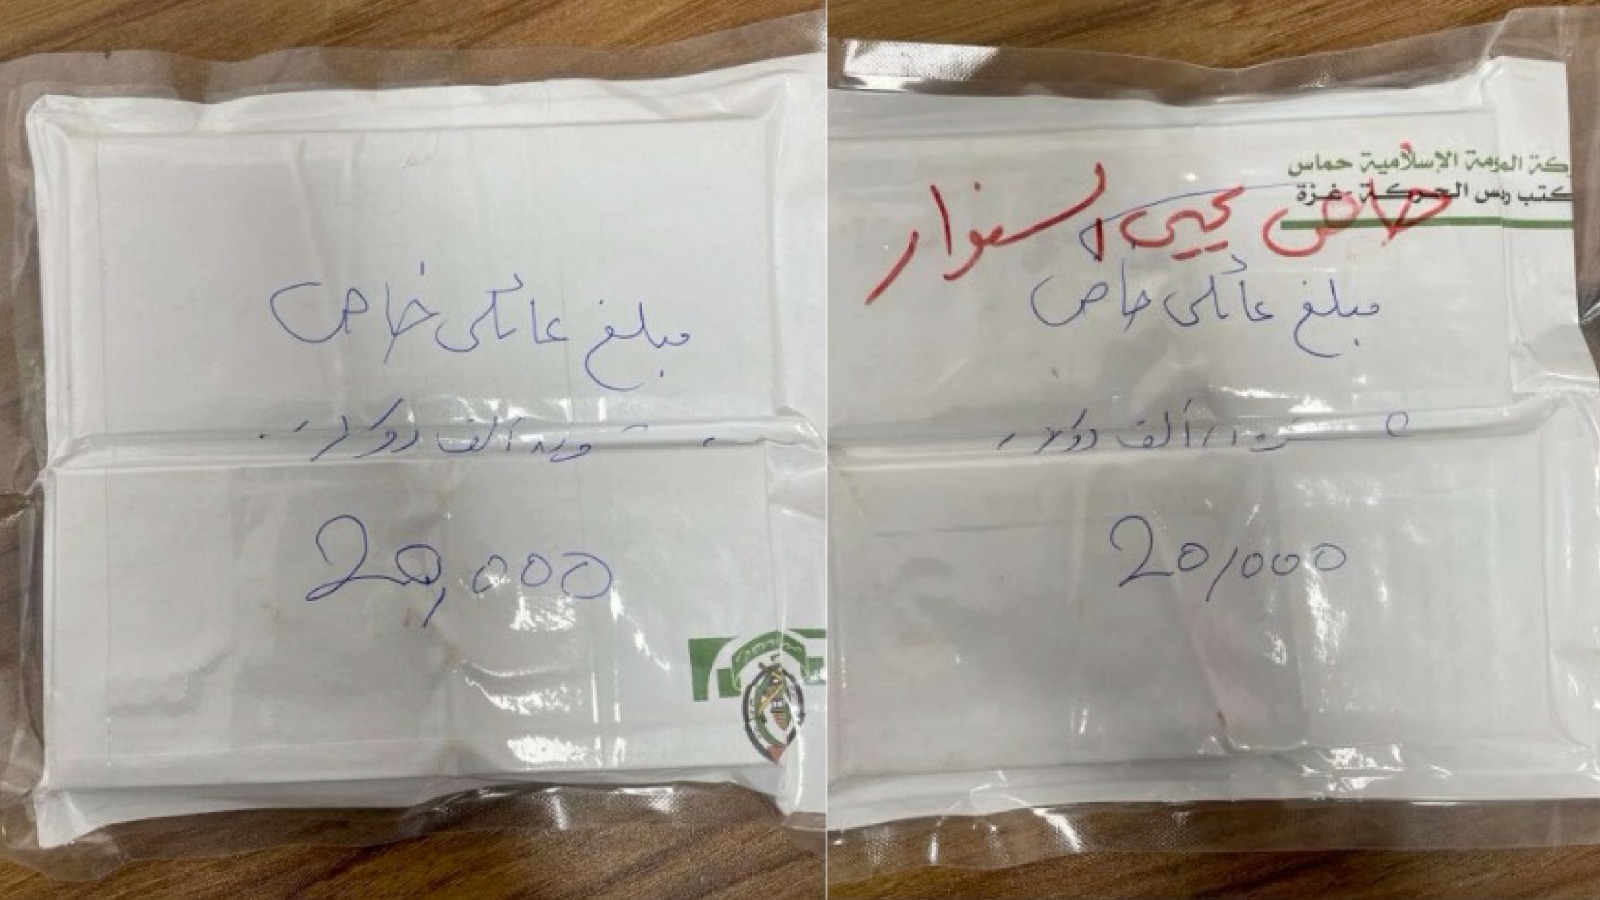 مبلغ عائلي خاص
ألف دولار
20,000
كة المقاومة الإسلامية حماس
كتب رئيس الحركة غزة
خاص يحيى السنوار
مبلغ عائلي خاص
ألف دولار
20,000